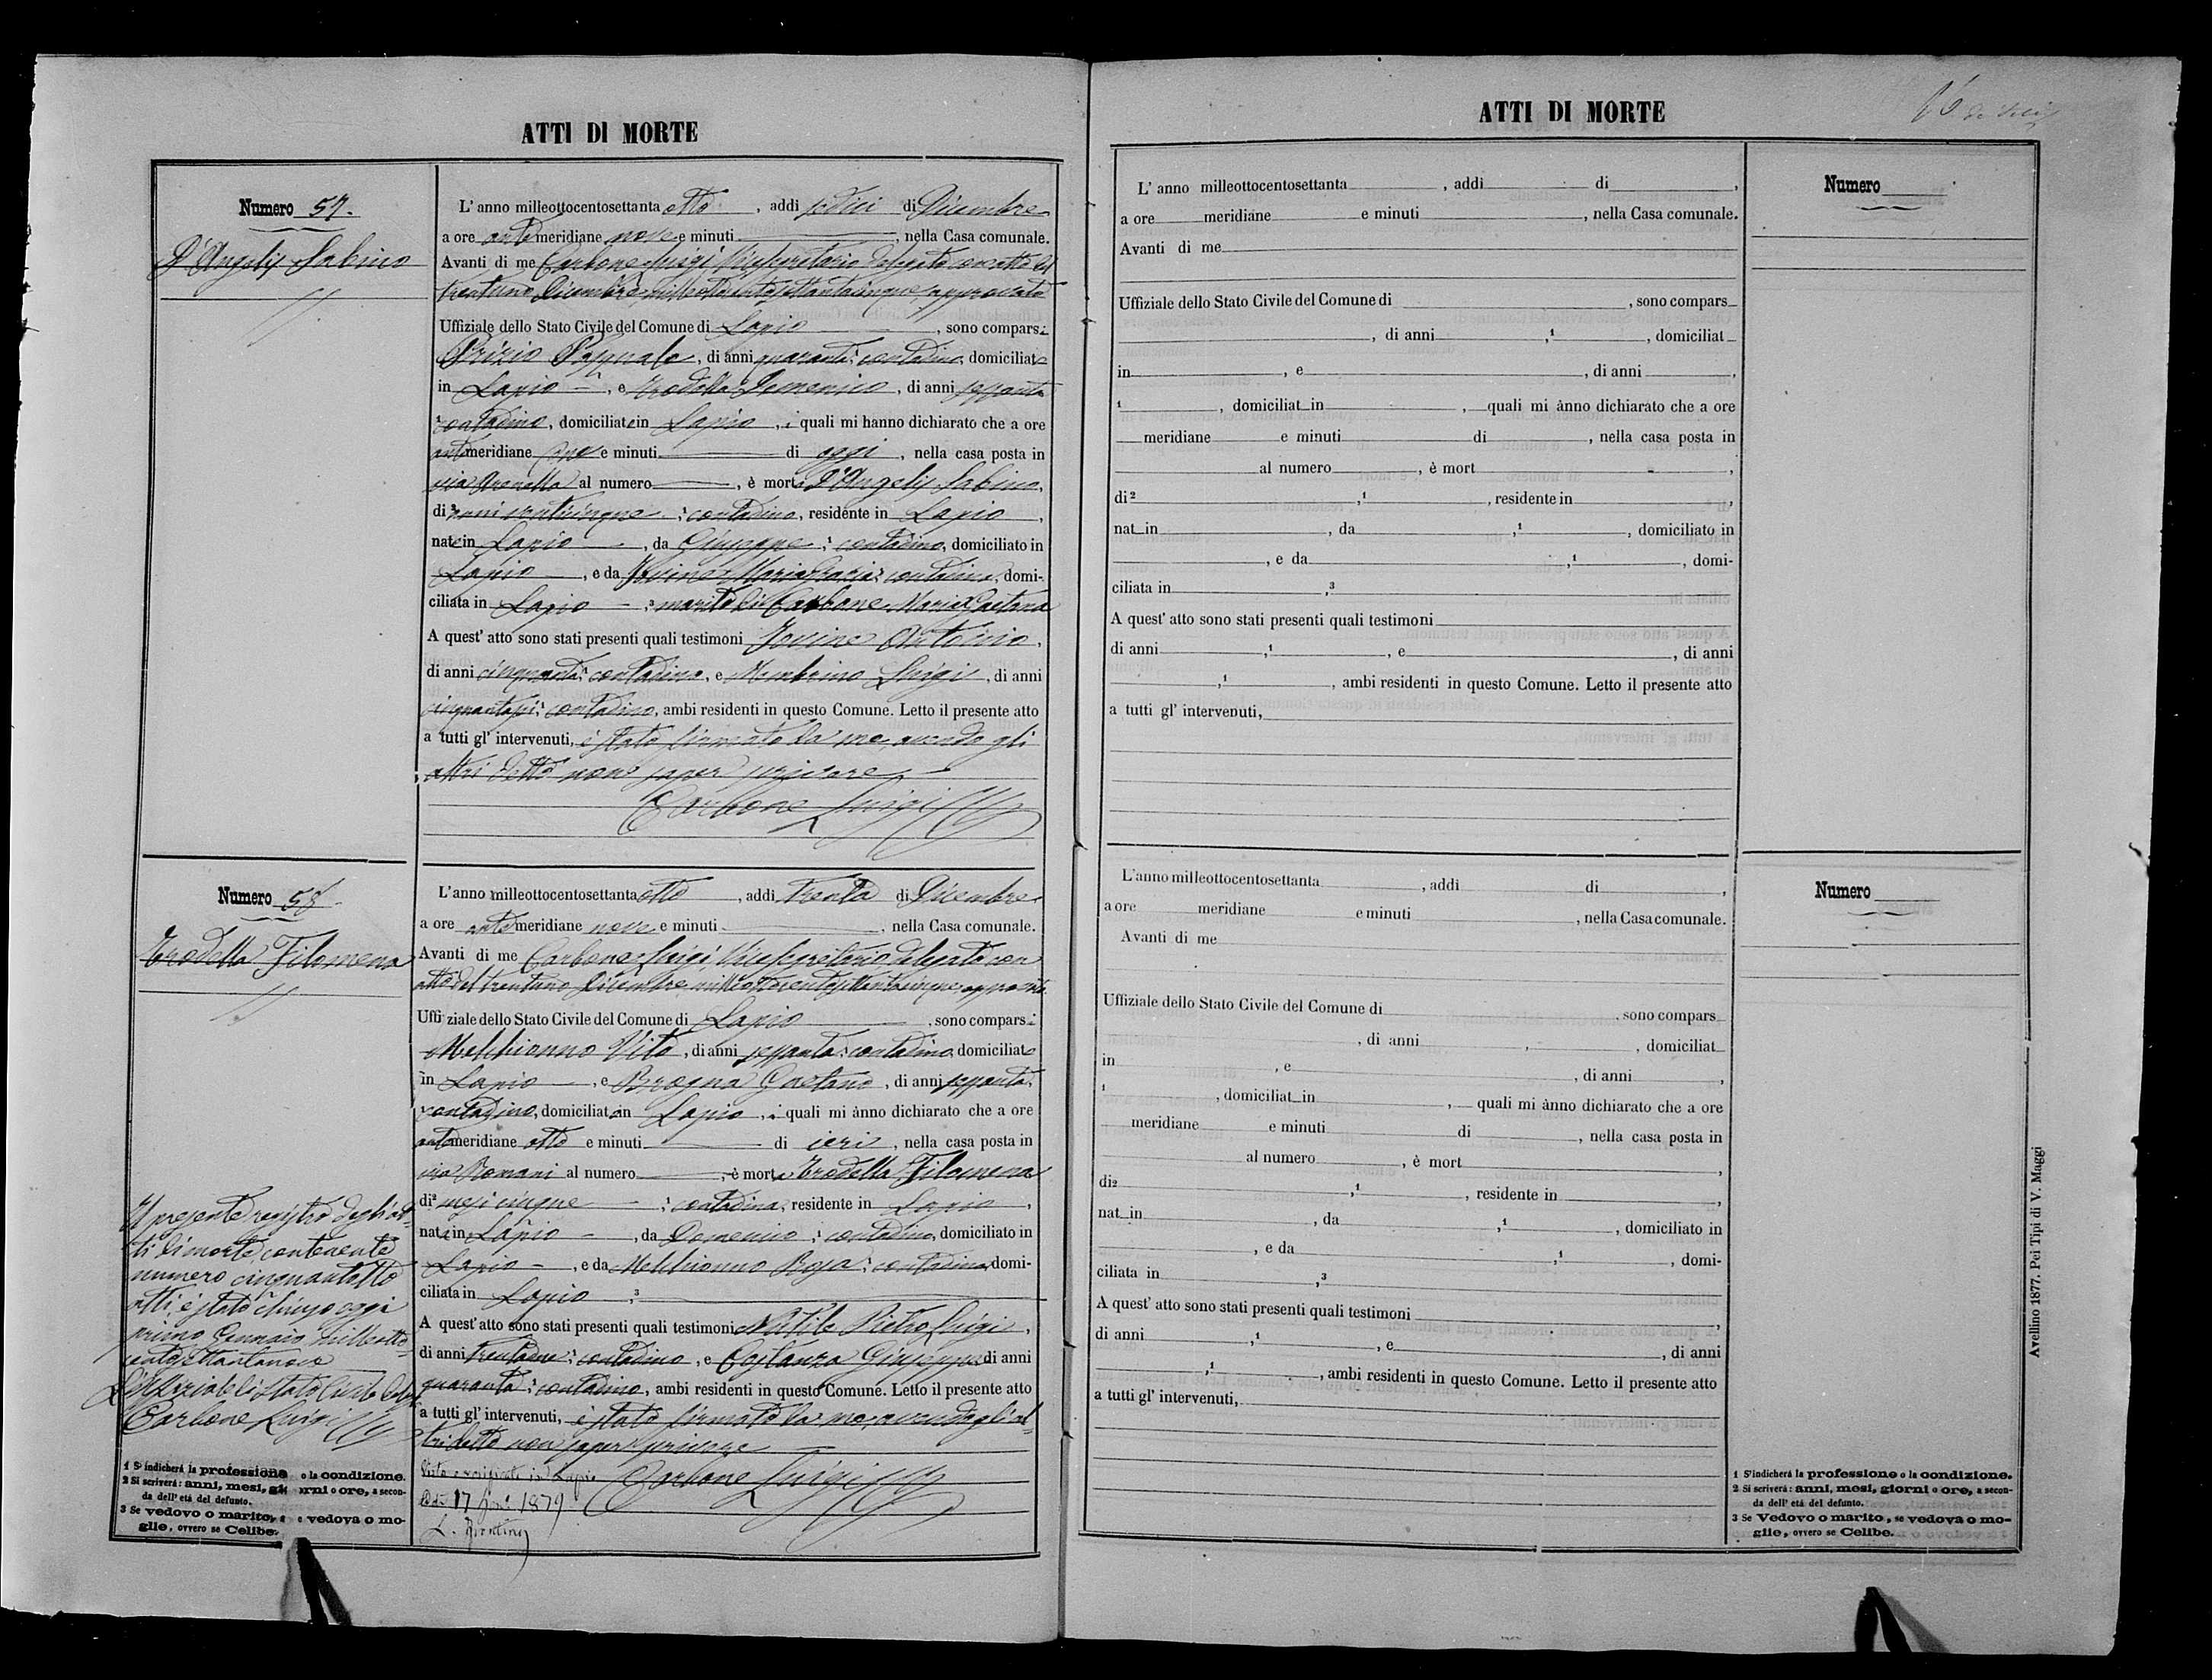 ATTI DI MORTE
Numero 57.
D'Angelis Sabino
L'anno milleottocentosettanta otto, addì sedici di Dicembre
a ore antemeridiane nove e minuti, nella Casa comunale.
Avanti di me Carbone Luigi Vicesegretario delegato con atto del
trentuno Dicembre milleottocentosettantacinque, approvato
Uffiziale dello Stato Civile del Comune di Lapio, sono comparsi
Prizio Pasquale, di anni quaranta, contadino domiciliato
in Lapio, e Trodella Domenico, di anni sessanta
contadino, domiciliato in Lapio, i quali mi hanno dichiarato che a ore
antemeridiane e minuti di oggi, nella casa posta in
via Arenella al numero, è morto D'Angelis Sabino,
di anni venticinque, contadino, residente in Lapio,
nato in Lapio, da Giuseppe, contadino, domiciliato in
Lapio, e da Maria Grazia, contadina, domi-
ciliata in Lapio, marito di Carbone Maria Gaetana
A quest'atto sono stati presenti quali testimoni Iovine Antonio,
di anni cinquanta, contadino, e Membrino Luigi, di anni
cinquantasei, contadino, ambi residenti in questo Comune. Letto il presente atto
a tutti gl'intervenuti, è stato firmato da me avendo gli
altri detto non saper scrivere
Carbone Luigi
Numero 58.
Trodella Filomena
L'anno milleottocentosettanta otto, addì trenta di Dicembre
a ore antemeridiane nove e minuti, nella Casa comunale.
Avanti di me Carbone Luigi, Vicesegretario, delegato con
atto del trentuno Dicembre milleottocentosettantacinque approvato
Uffiziale dello Stato Civile del Comune di Lapio, sono comparsi
Melchionno Vito, di anni sessanta, contadino domiciliato
in Lapio, e Brogna Gaetano, di anni sessanta,
contadino, domiciliato in Lapio, i quali mi ànno dichiarato che a ore
antemeridiane otto e minuti di ieri, nella casa posta in
via Romani al numero, è morta Trodella Filomena
di mesi cinque, contadina, residente in Lapio,
nata in Lapio, da Domenico, contadino, domiciliato in
Lapio, e da Melchionno Rosa, contadina, domi-
ciliata in Lapio, 3
A quest'atto sono stati presenti quali testimoni Natile Pietro Luigi,
di anni trentadue, contadino, e Costanza Giuseppe di anni
quaranta, contadino, ambi residenti in questo Comune. Letto il presente atto
a tutti gl'intervenuti, è stato firmato da me, avendo gli al-
tri detto non saper scrivere
Carbone Luigi
Visto e verificato in Lapio
17 1879
Il presente registro degli at-
ti di morte, contenente
numero cinquantotto
atti, è stato chiuso oggi
primo Gennaio milleotto-
centosettantanove
L'Uffiziale di Stato Civile
Carbone Luigi
1 S'indicherà la professione o la condizione.
2 Si scriverà: anni, mesi, giorni o ore, a secon-
da dell'età del defunto.
3 Se vedovo o marito, se vedova o mo-
glie, ovvero se Celibe.
ATTI DI MORTE
L'anno milleottocentosettanta, addì di,
a ore meridiane e minuti, nella Casa comunale.
Avanti di me
Uffiziale dello Stato Civile del Comune di, sono compars
, di anni,1, domiciliat
in, e, di anni,
1, domiciliat in, quali mi ànno dichiarato che a ore
meridiane e minuti di, nella casa posta in
al numero, è mort,
di2,1, residente in,
nat in, da,1, domiciliato in
, e da,1, domi-
ciliata in,3
A quest'atto sono stati presenti quali testimoni
di anni,1, e, di anni
,1, ambi residenti in questo Comune. Letto il presente atto
a tutti gl'intervenuti,
Numero
L'anno milleottocentosettanta, addì di,
a ore meridiane e minuti, nella Casa comunale.
Avanti di me
Uffiziale dello Stato Civile del Comune di, sono compars
, di anni, domiciliat
in, e, di anni,
1, domiciliat in, quali mi ànno dichiarato che a ore
meridiane e minuti di, nella casa posta in
al numero, è mort,
di2,1, residente in,
nat in, da,1, domiciliato in
, e da,1, domi-
ciliata in,3
A quest'atto sono stati presenti quali testimoni,
di anni,1, e, di anni
,1, ambi residenti in questo Comune. Letto il presente atto
a tutti gl'intervenuti,
Numero
1 S'indicherà la professione o la condizione.
2 Si scriverà: anni, mesi, giorni o ore, a secon-
da dell'età del defunto.
3 Se Vedovo o marito, se vedova o mo-
glie, ovvero se Celibe.
Avellino 1877. Pei Tipi di V. Maggi